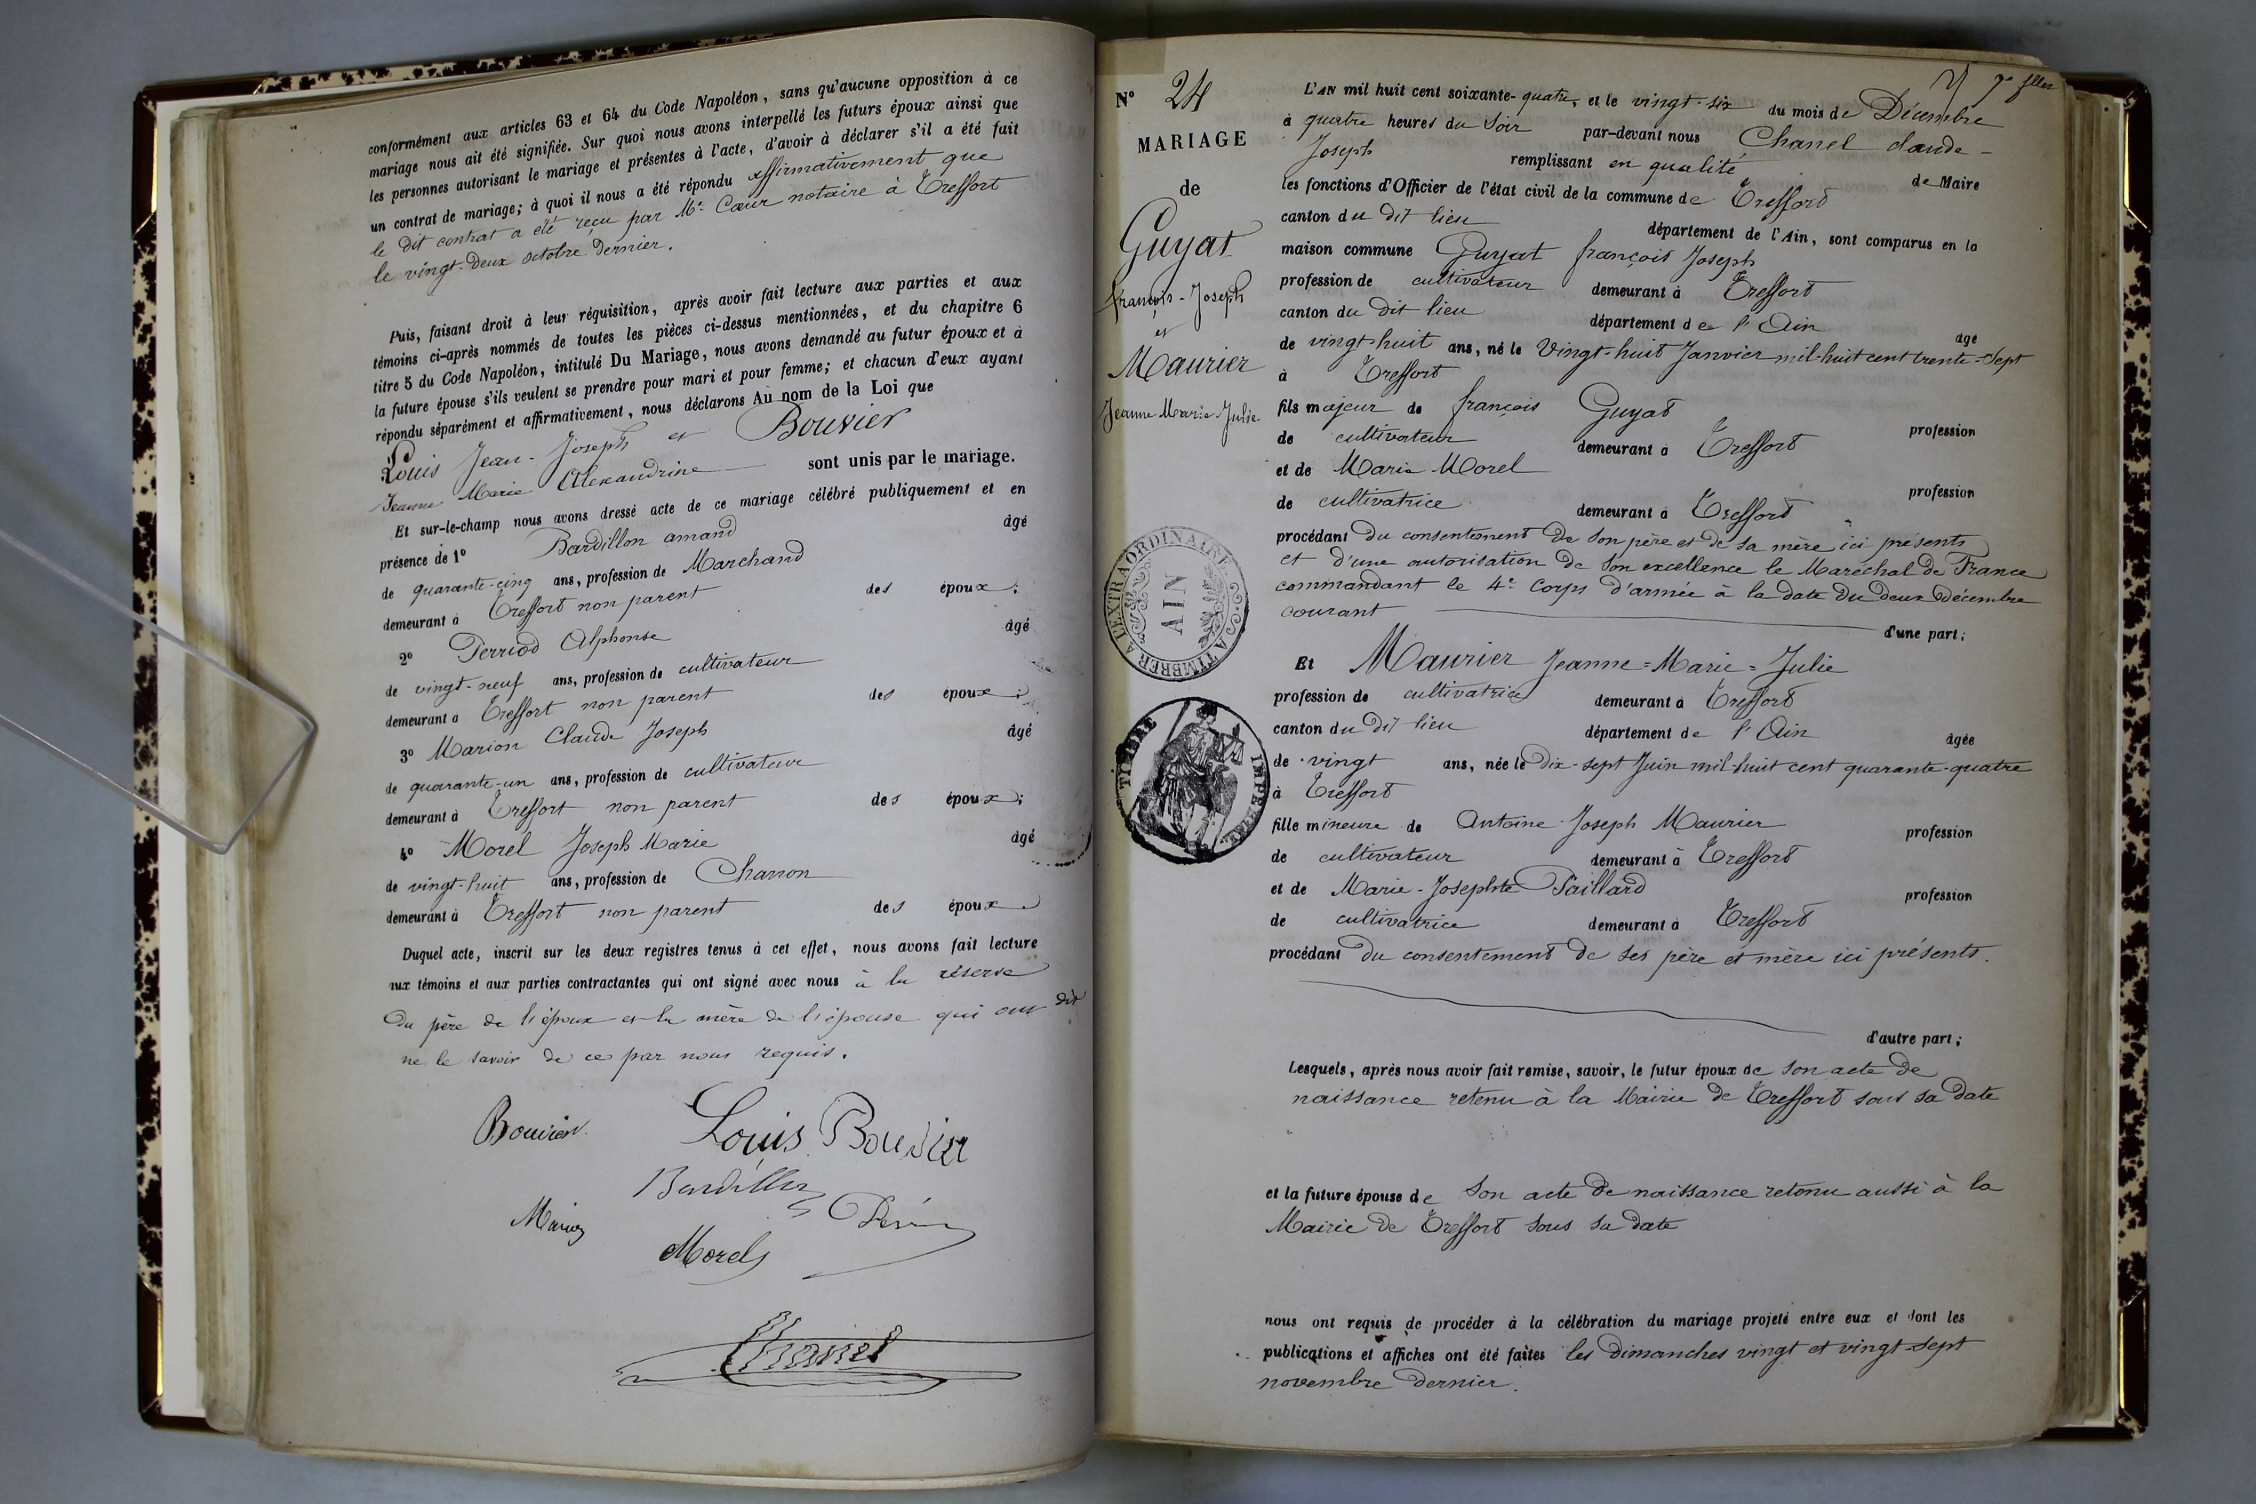 conformément aux articles 63 et 64 du Code Napoléon, sans qu'aucune opposition à ce
mariage nous ait été signifiée. Sur quoi nous avons interpellé les futurs époux ainsi que
les personnes autorisant le mariage et présentes à l'acte, d'avoir à déclarer s'il a été fait
un contrat de mariage; à quoi il nous a été répondu affirmativement que
le dit contrat a été reçu par Me. Cœur notaire à Treffort
le vingt-deux octobre dernier.
Puis, faisant droit à leur réquisition, après avoir fait lecture aux parties et aux
témoins ci-après nommés de toutes les pièces ci-dessus mentionnées, et du chapitre 6
titre 5 du Code Napoléon, intitulé Du Mariage, nous avons demandé au futur époux et à
la future épouse s'ils veulent se prendre pour mari et pour femme; et chacun d'eux ayant
répondu séparément et affirmativement, nous déclarons Au nom de la Loi que
Louis Jean-Joseph et Bouvier
Jeanne Marie Alexandrine sont unis par le mariage.
Et sur-le-champ nous avons dressé acte de ce mariage célébré publiquement et en
présence de 1º Bardillon amand âgé
de quarante-cinq ans, profession de Marchand
demeurant à Treffort non parent des époux;
2º Perriod Alphonse âgé
de vingt-neuf ans, profession de cultivateur
demeurant à Treffort non parent des époux;
3º Marion Claude Joseph âgé
de quarante-un ans, profession de cultivateur
demeurant à Treffort non parent des époux;
4º Morel Joseph Marie âgé
de vingt-huit ans, profession de Charron
demeurant à Treffort non parent des époux.
Duquel acte, inscrit sur les deux registres tenus à cet effet, nous avons fait lecture
aux témoins et aux parties contractantes qui ont signé avec nous à la réserve
du père de l'époux et la mère de l'épouse qui ont dit
ne le savoir de ce par nous requis.
Bouvier Louis Bouvier
Bardillon
Marion
Morel
Chanel
Nº 24
MARIAGE
de
Guyat
françois-Joseph
et
Maurier
Jeanne Marie Julie
A L'EXTRAORDINAIRE
AIN
A TIMBRER
TIMBRE IMPERIAL
L'AN mil huit cent soixante-quatre, et le vingt-six du mois de Décembre
à quatre heures du Soir par-devant nous Chanel claude-
Joseph remplissant en qualité de Maire
les fonctions d'Officier de l'état civil de la commune de Treffort
canton du dit lieu département de l'Ain, sont comparus en la
maison commune Guyat françois Joseph
profession de cultivateur demeurant à Treffort
canton du dit lieu département de l'Ain âgé
de vingt-huit ans, né le Vingt-huit Janvier mil-huit cent trente-Sept
à Treffort
fils majeur de françois Guyat profession
de cultivateur demeurant à Treffort
et de Marie Morel profession
de cultivatrice demeurant à Treffort
procédant du consentement de son père et de sa mère ici présents
et d'une autorisation de son excellence le Maréchal de France
commandant le 4e Corps d'armée à la date du deux décembre
courant d'une part;
Et Maurier Jeanne=Marie=Julie
profession de cultivatrice demeurant à Treffort
canton du dit lieu département de l'Ain âgée
de vingt ans, née le dix-sept Juin mil-huit cent quarante-quatre
à Treffort
fille mineure de Antoine-Joseph Maurier profession
de cultivateur demeurant à Treffort
et de Marie-Josephte Paillard profession
de cultivatrice demeurant à Treffort
procédant du consentement de ses père et mère ici présents.
d'autre part;
Lesquels, après nous avoir fait remise, savoir, le futur époux de son acte de
naissance retenu à la Mairie de Treffort sous sa date
et la future épouse de Son acte de naissance retenu aussi à la
Mairie de Treffort sous sa date
nous ont requis de procéder à la célébration du mariage projeté entre eux et dont les
publications et affiches ont été faites les dimanches vingt et vingt-sept
novembre dernier.